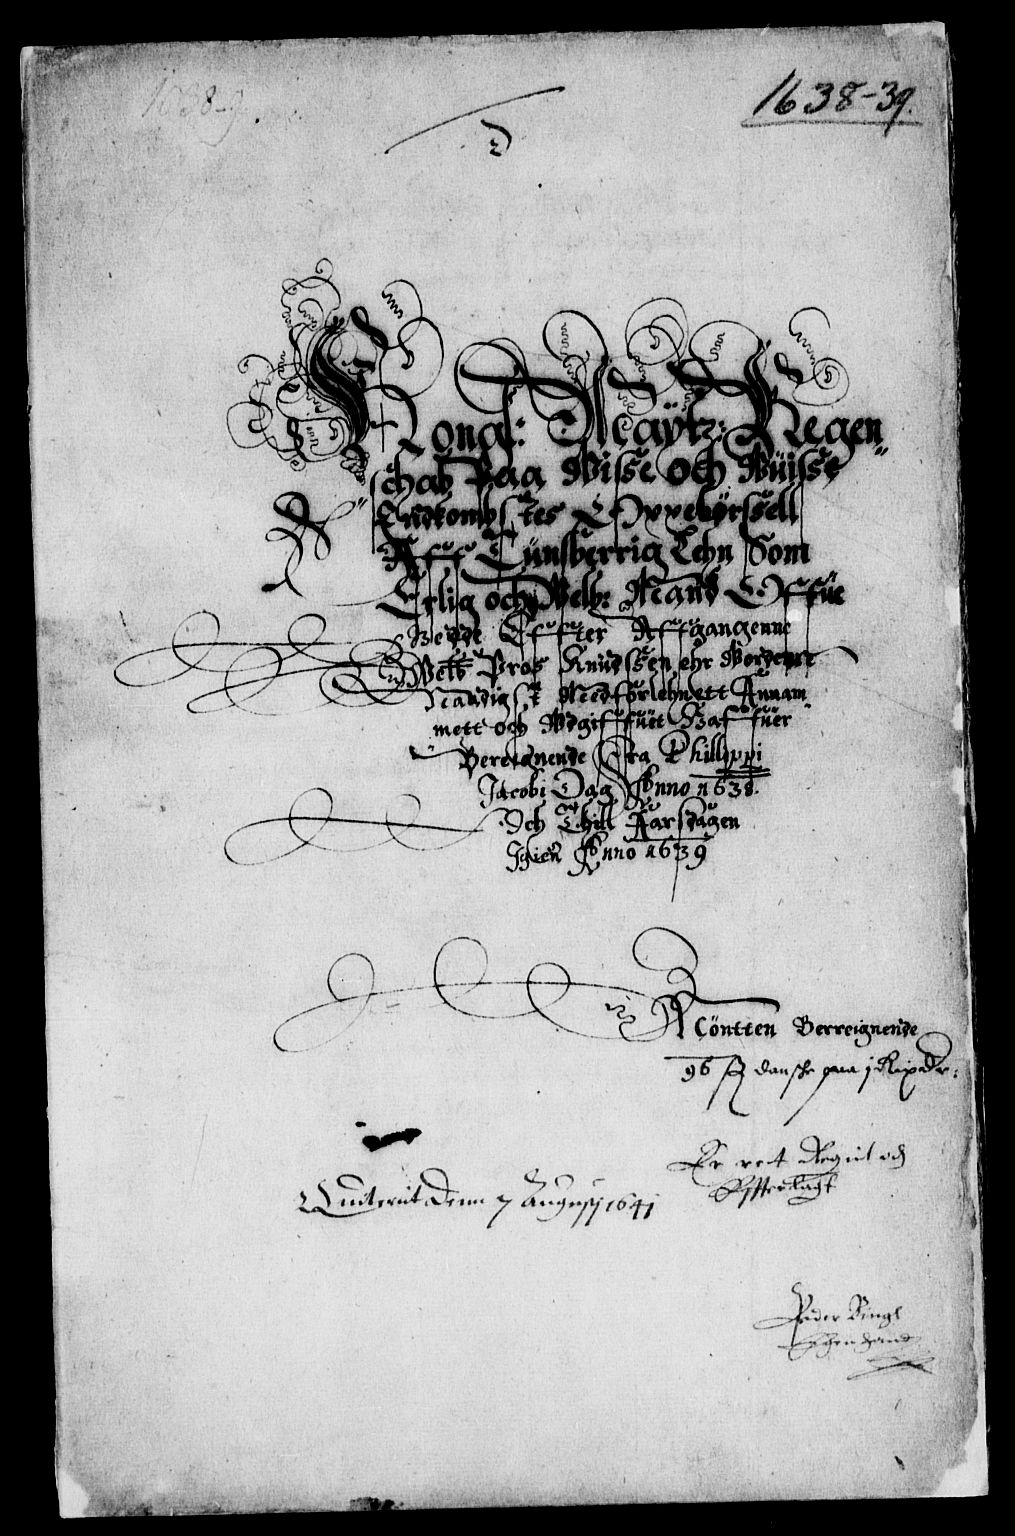 1638-39.
1638-9.
Kongl: Maÿtz: Regen
schab Paa Wisse och Wüisse
Indkombstes Oppebørssell
Aff Tünsberrig Lehn Som
Erlig och Welb: Mand Offue
Bedde Effter Affgangenne
Welb Pros Knudssen ehr Wordenn
Naadigst Medforlehnett Annam
mett och Wdgiffüet Haffüer
Bereignende fra Phillippi
Jacobi Dag Anno 1638.
Och Thill Aarsdagen
Igien Anno 1639
Acöntten Berreignende
96 ß dansche paa j Rixdr:
Er ret Regnit och
Effterlagt
Quiterit Denn 7 Augusti 1641
Peder
Egen handt